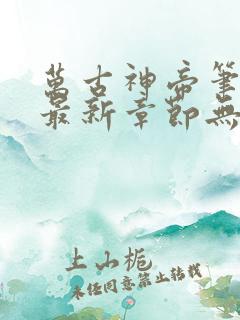 萬古神帝筆
最新章節無
上山梔
未经同意禁止转载